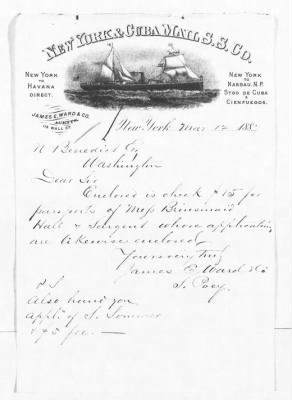 NEW YORK & CUBA MAIL S.S. CO.
NEW YORK
TO
HAVANA
DIRECT.
NEW YORK
TO
NASSAU. N.P.
STGO DE CUBA
&
CIENFUEGOS.
JAMES E. WARD & CO.
AGENTS
113 WALL ST.
New York Mar 12 188
N Benedict Esq
Washington
Dear Sir
Enclosed is check $15 for
passports of Mess Brinsmaid
Hall & Sargent whose applications
are likewise enclosed,
Yours very truly
James E. Ward & Co
P S
Also hand you
appln of S. Sommer
& $5 fee. —